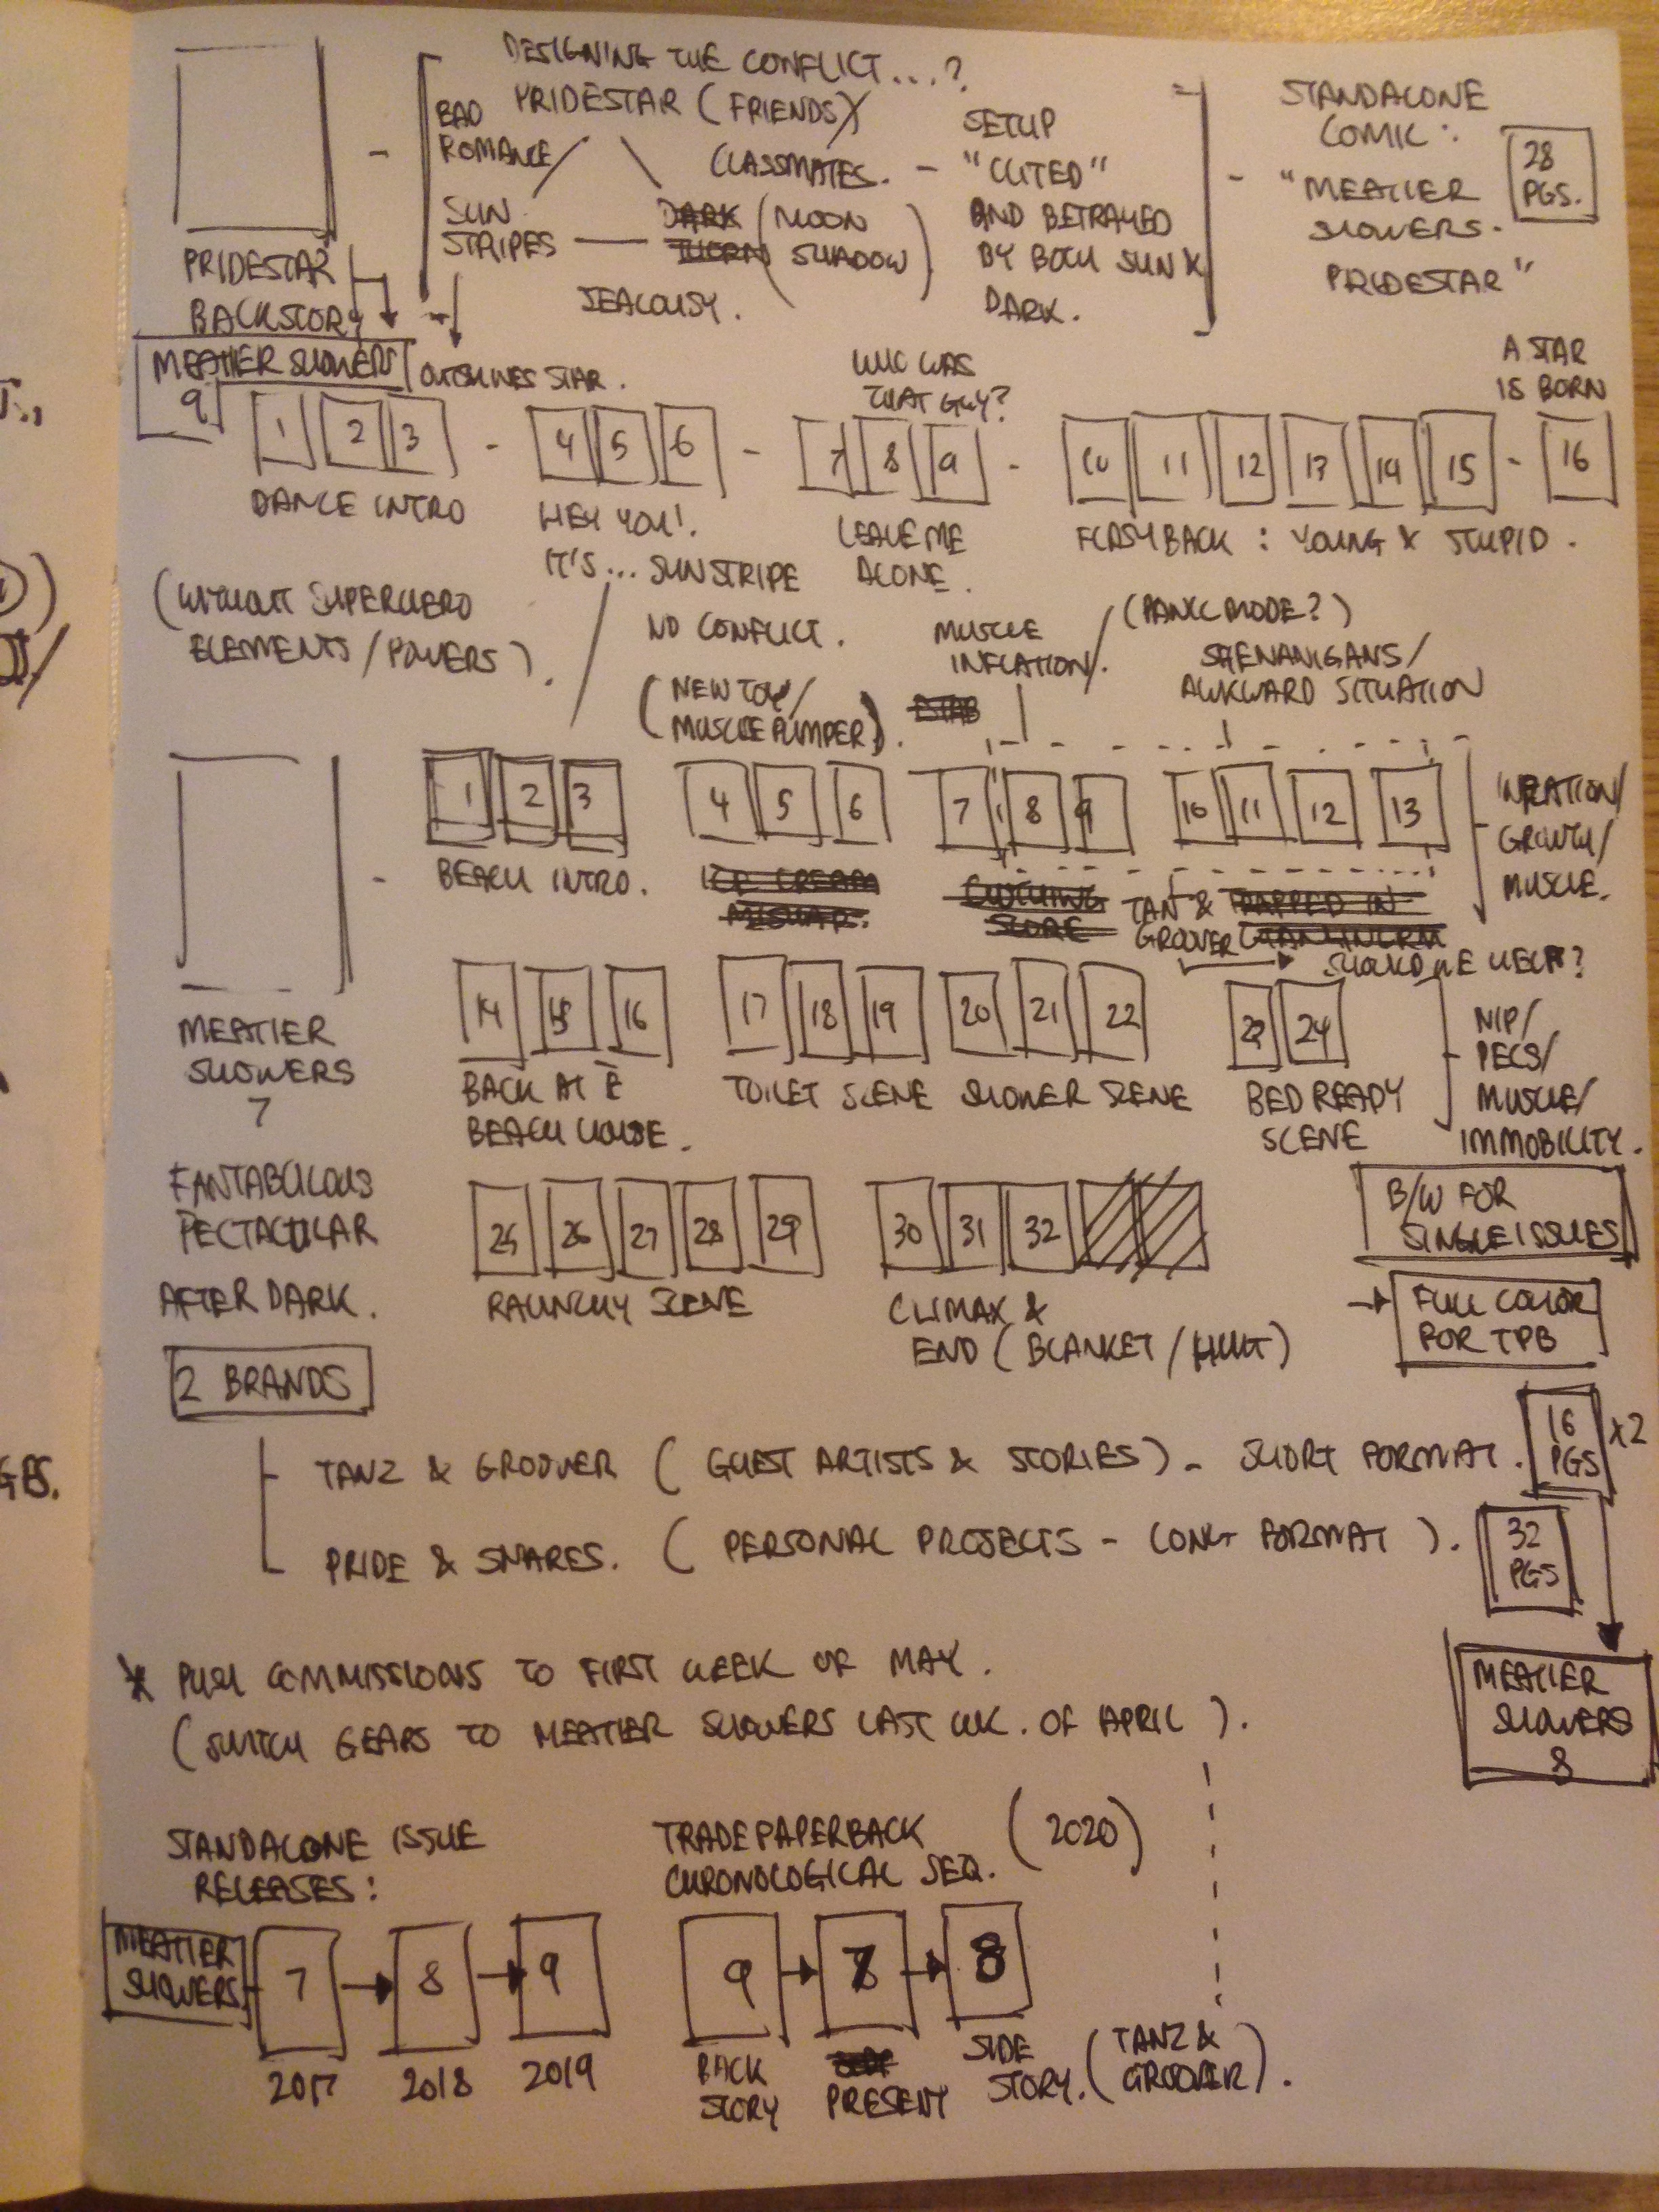 DESIGNING THE CONFLICT...?
PRIDESTAR (FRIENDS)
BAD
ROMANCE/
CLASSMATES. -
SUN
STRIPES
DARK
THORN
(MOON
SHADOW)
JEALOUSY.
SETUP
"CLITED"
AND BETRAYED
BY BOTH SUN &
DARK.
STANDALONE
COMIC:
- "MEATIER
SHOWERS-
PRIDESTAR"
28
PGS.
PRIDESTAR
BACKSTORY
MEATIER SHOWERS
9
OUTSHINES STAR.
WHO WAS
THAT GUY?
A STAR
IS BORN
1 2 3 - 4 5 6 - 7 8 9 - 10 11 12 13 14 15 - 16
DANCE INTRO
HEY YOU!
IT'S... SUNSTRIPE
LEAVE ME
ALONE.
FLASHBACK: YOUNG & STUPID.
(WITHOUT SUPERHERO
ELEMENTS/POWERS).
NO CONFLICT.
(NEW TOY/
MUSCLE PUMPER).
MUSCLE
INFLATION/.
(PANIC MODE?)
SHENANIGANS/
AWKWARD SITUATION
1 2 3 4 5 6 7 8 9 10 11 12 13
BEACH INTRO.
ICE CREAM
MISHAP.
CLOTHING
STORE
TAN &
GROOVER
TRAPPED IN
SHOULD WE HELP?
INFLATION/
GROWTH/
MUSCLE.
MEATIER
SHOWERS
7
14 15 16 17 18 19 20 21 22 23 24
BACK AT E
BEACH HOUSE.
TOILET SCENE
SHOWER SCENE
BED READY
SCENE
NIP/
PECS/
MUSCLE/
IMMOBILITY.
FANTABULOUS
PECTACULAR
AFTER DARK.
25 26 27 28 29 30 31 32
RAUNCHY SCENE
CLIMAX &
END (BLANKET/HUG)
B/W FOR
SINGLE ISSUES
FULL COLOR
FOR TPB
2 BRANDS
TANZ & GROOVER (GUEST ARTISTS & STORIES) - SHORT FORMAT.
16
PGS
x2
PRIDE & SNARES. (PERSONAL PROJECTS - LONG FORMAT).
32
PGS
MEATIER
SHOWERS
8
* PUSH COMMISSIONS TO FIRST WEEK OF MAY.
(SWITCH GEARS TO MEATIER SHOWERS LAST WK. OF APRIL).
STANDALONE ISSUE
RELEASES:
TRADE PAPERBACK
CHRONOLOGICAL SEQ.
(2020)
MEATIER
SHOWERS
7 8 9
2017 2018 2019
9 7 8
BACK
STORY
PRESENT
SIDE
STORY.
(TANZ &
GROOVER).
GES.